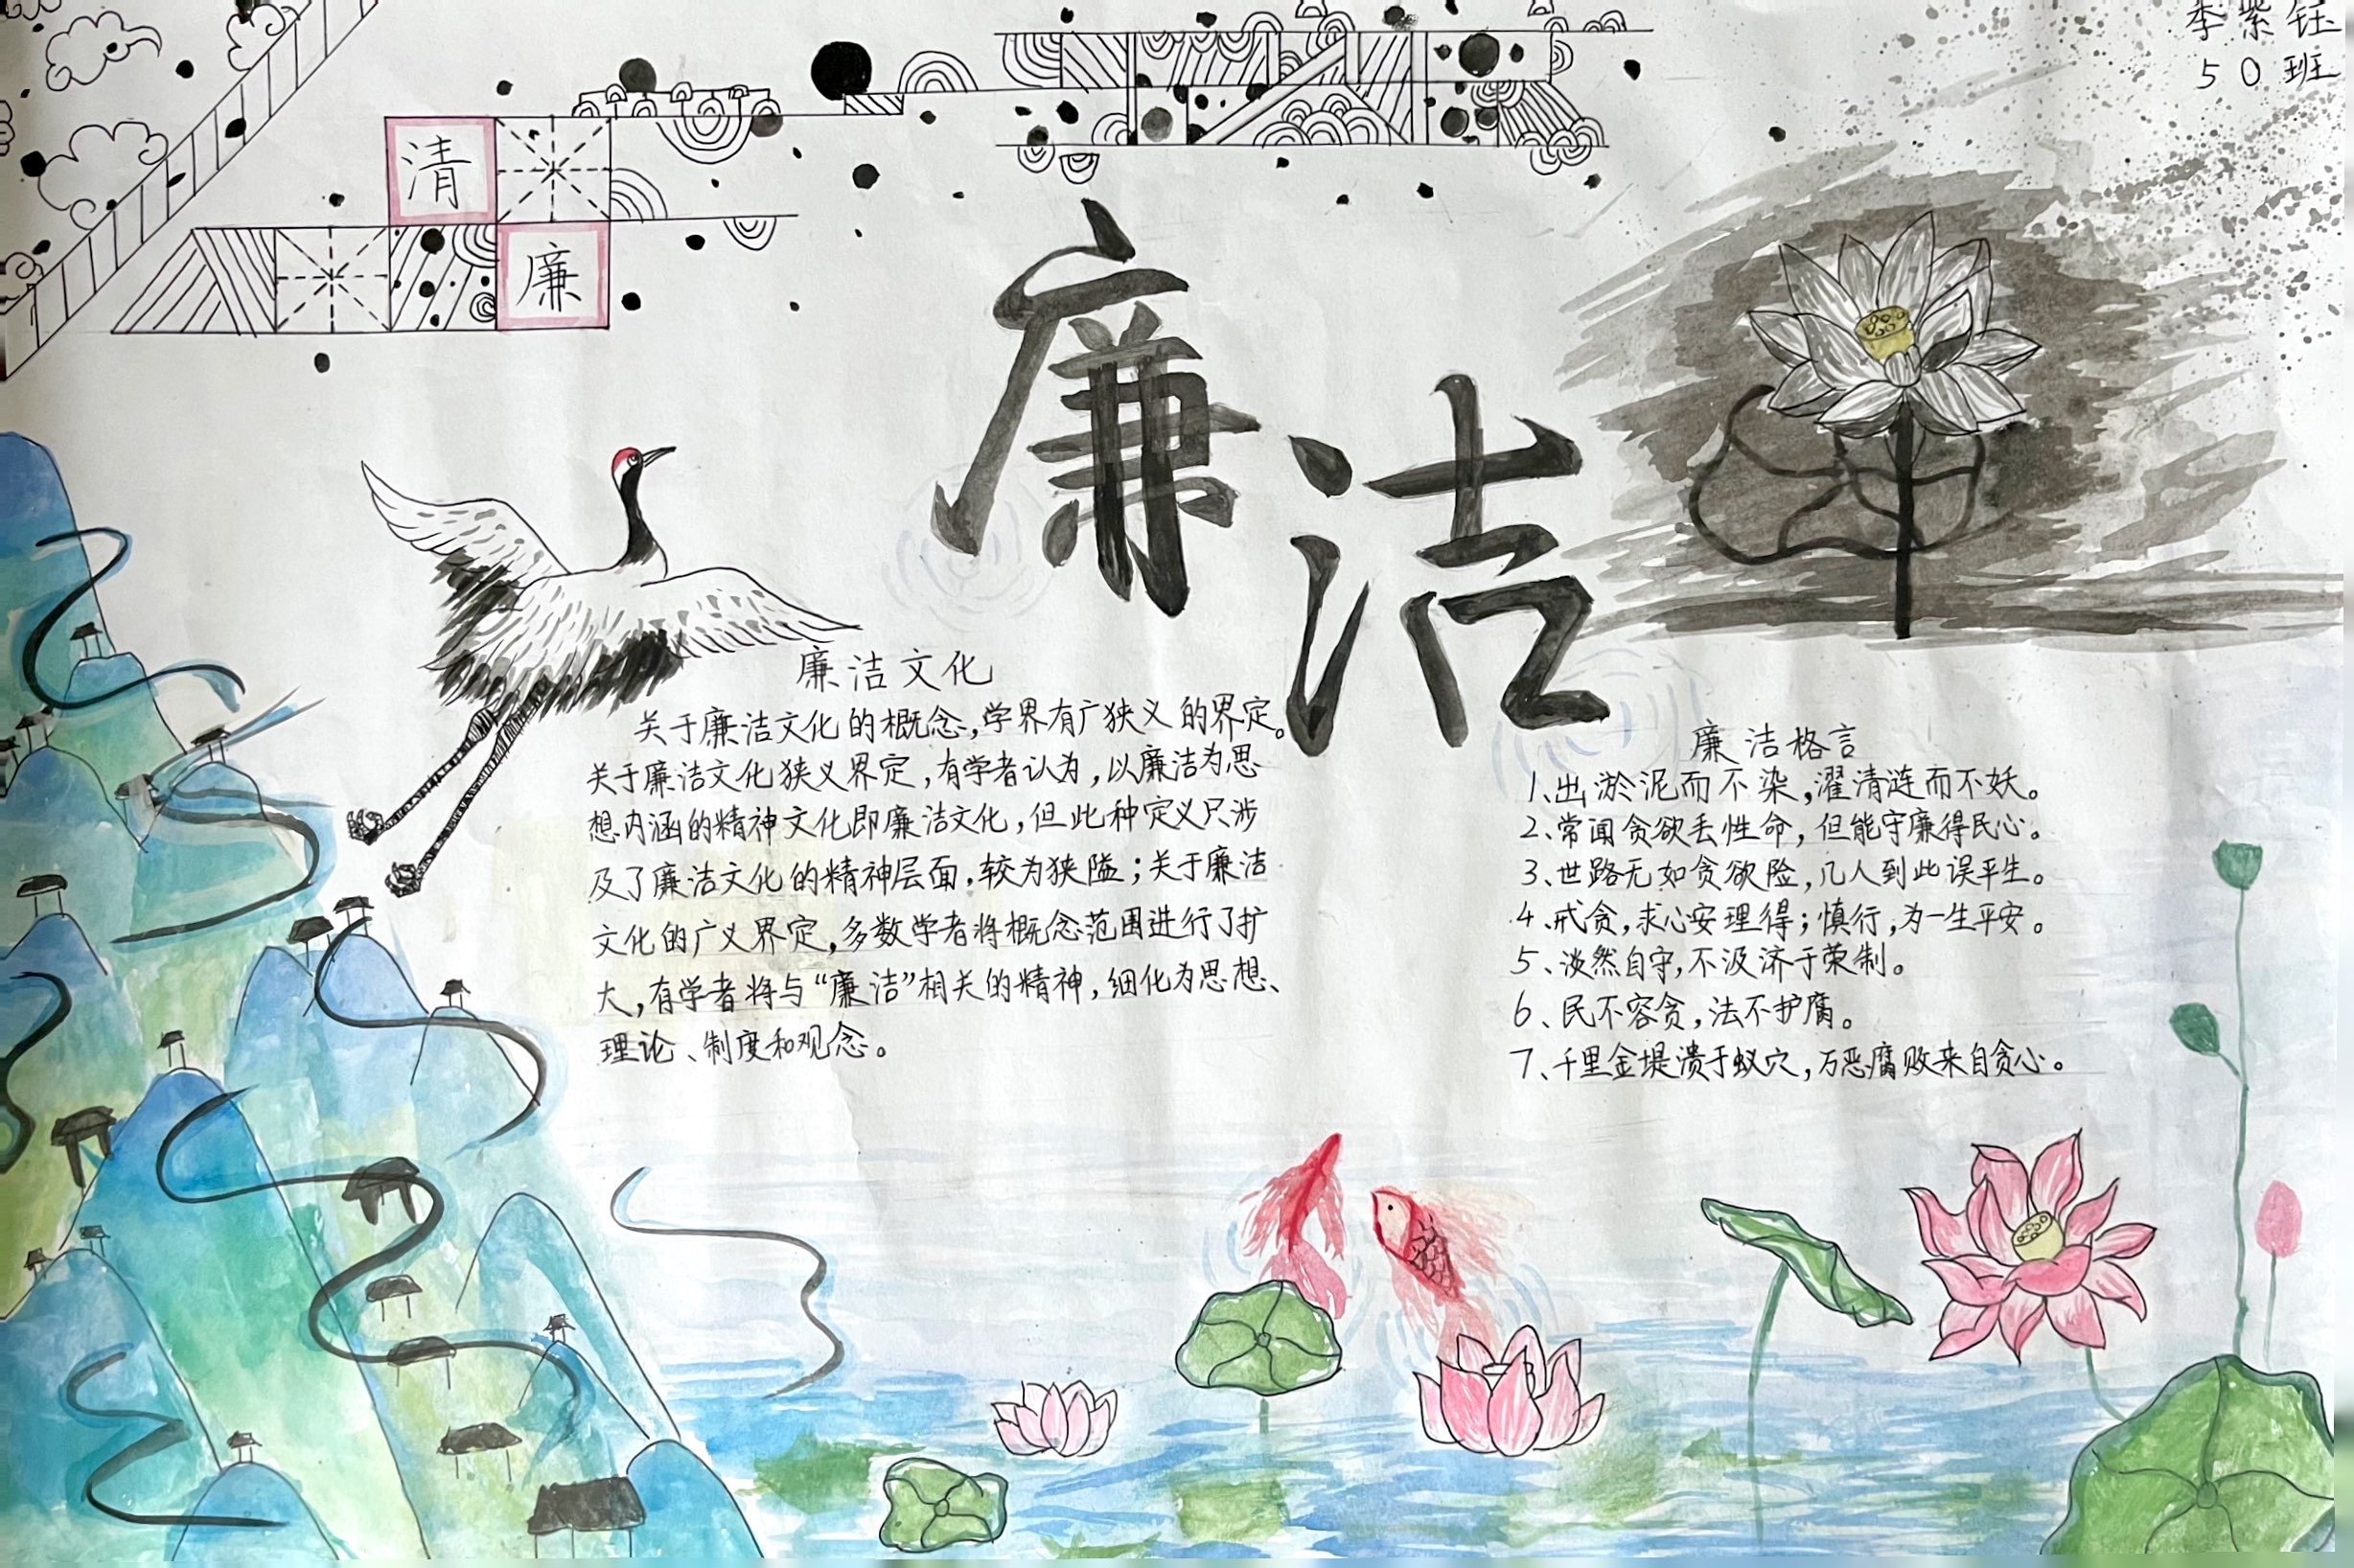 李紫钰
50班
清
廉
廉洁
廉洁文化
关于廉洁文化的概念,学界有广狭义的界定。
关于廉洁文化狭义界定,有学者认为,以廉洁为思
想内涵的精神文化即廉洁文化,但此种定义只涉
及了廉洁文化的精神层面,较为狭隘;关于廉洁
文化的广义界定,多数学者将概念范围进行了扩
大,有学者将与“廉洁”相关的精神,细化为思想、
理论、制度和观念。
廉洁格言
1、出淤泥而不染,濯清涟而不妖。
2、常闻贪欲丢性命,但能守廉得民心。
3、世路无如贪欲险,几人到此误平生。
4、戒贪,求心安理得;慎行,为一生平安。
5、淡然自守,不汲济于荣制。
6、民不容贪,法不护腐。
7、千里金堤溃于蚁穴,万恶腐败来自贪心。